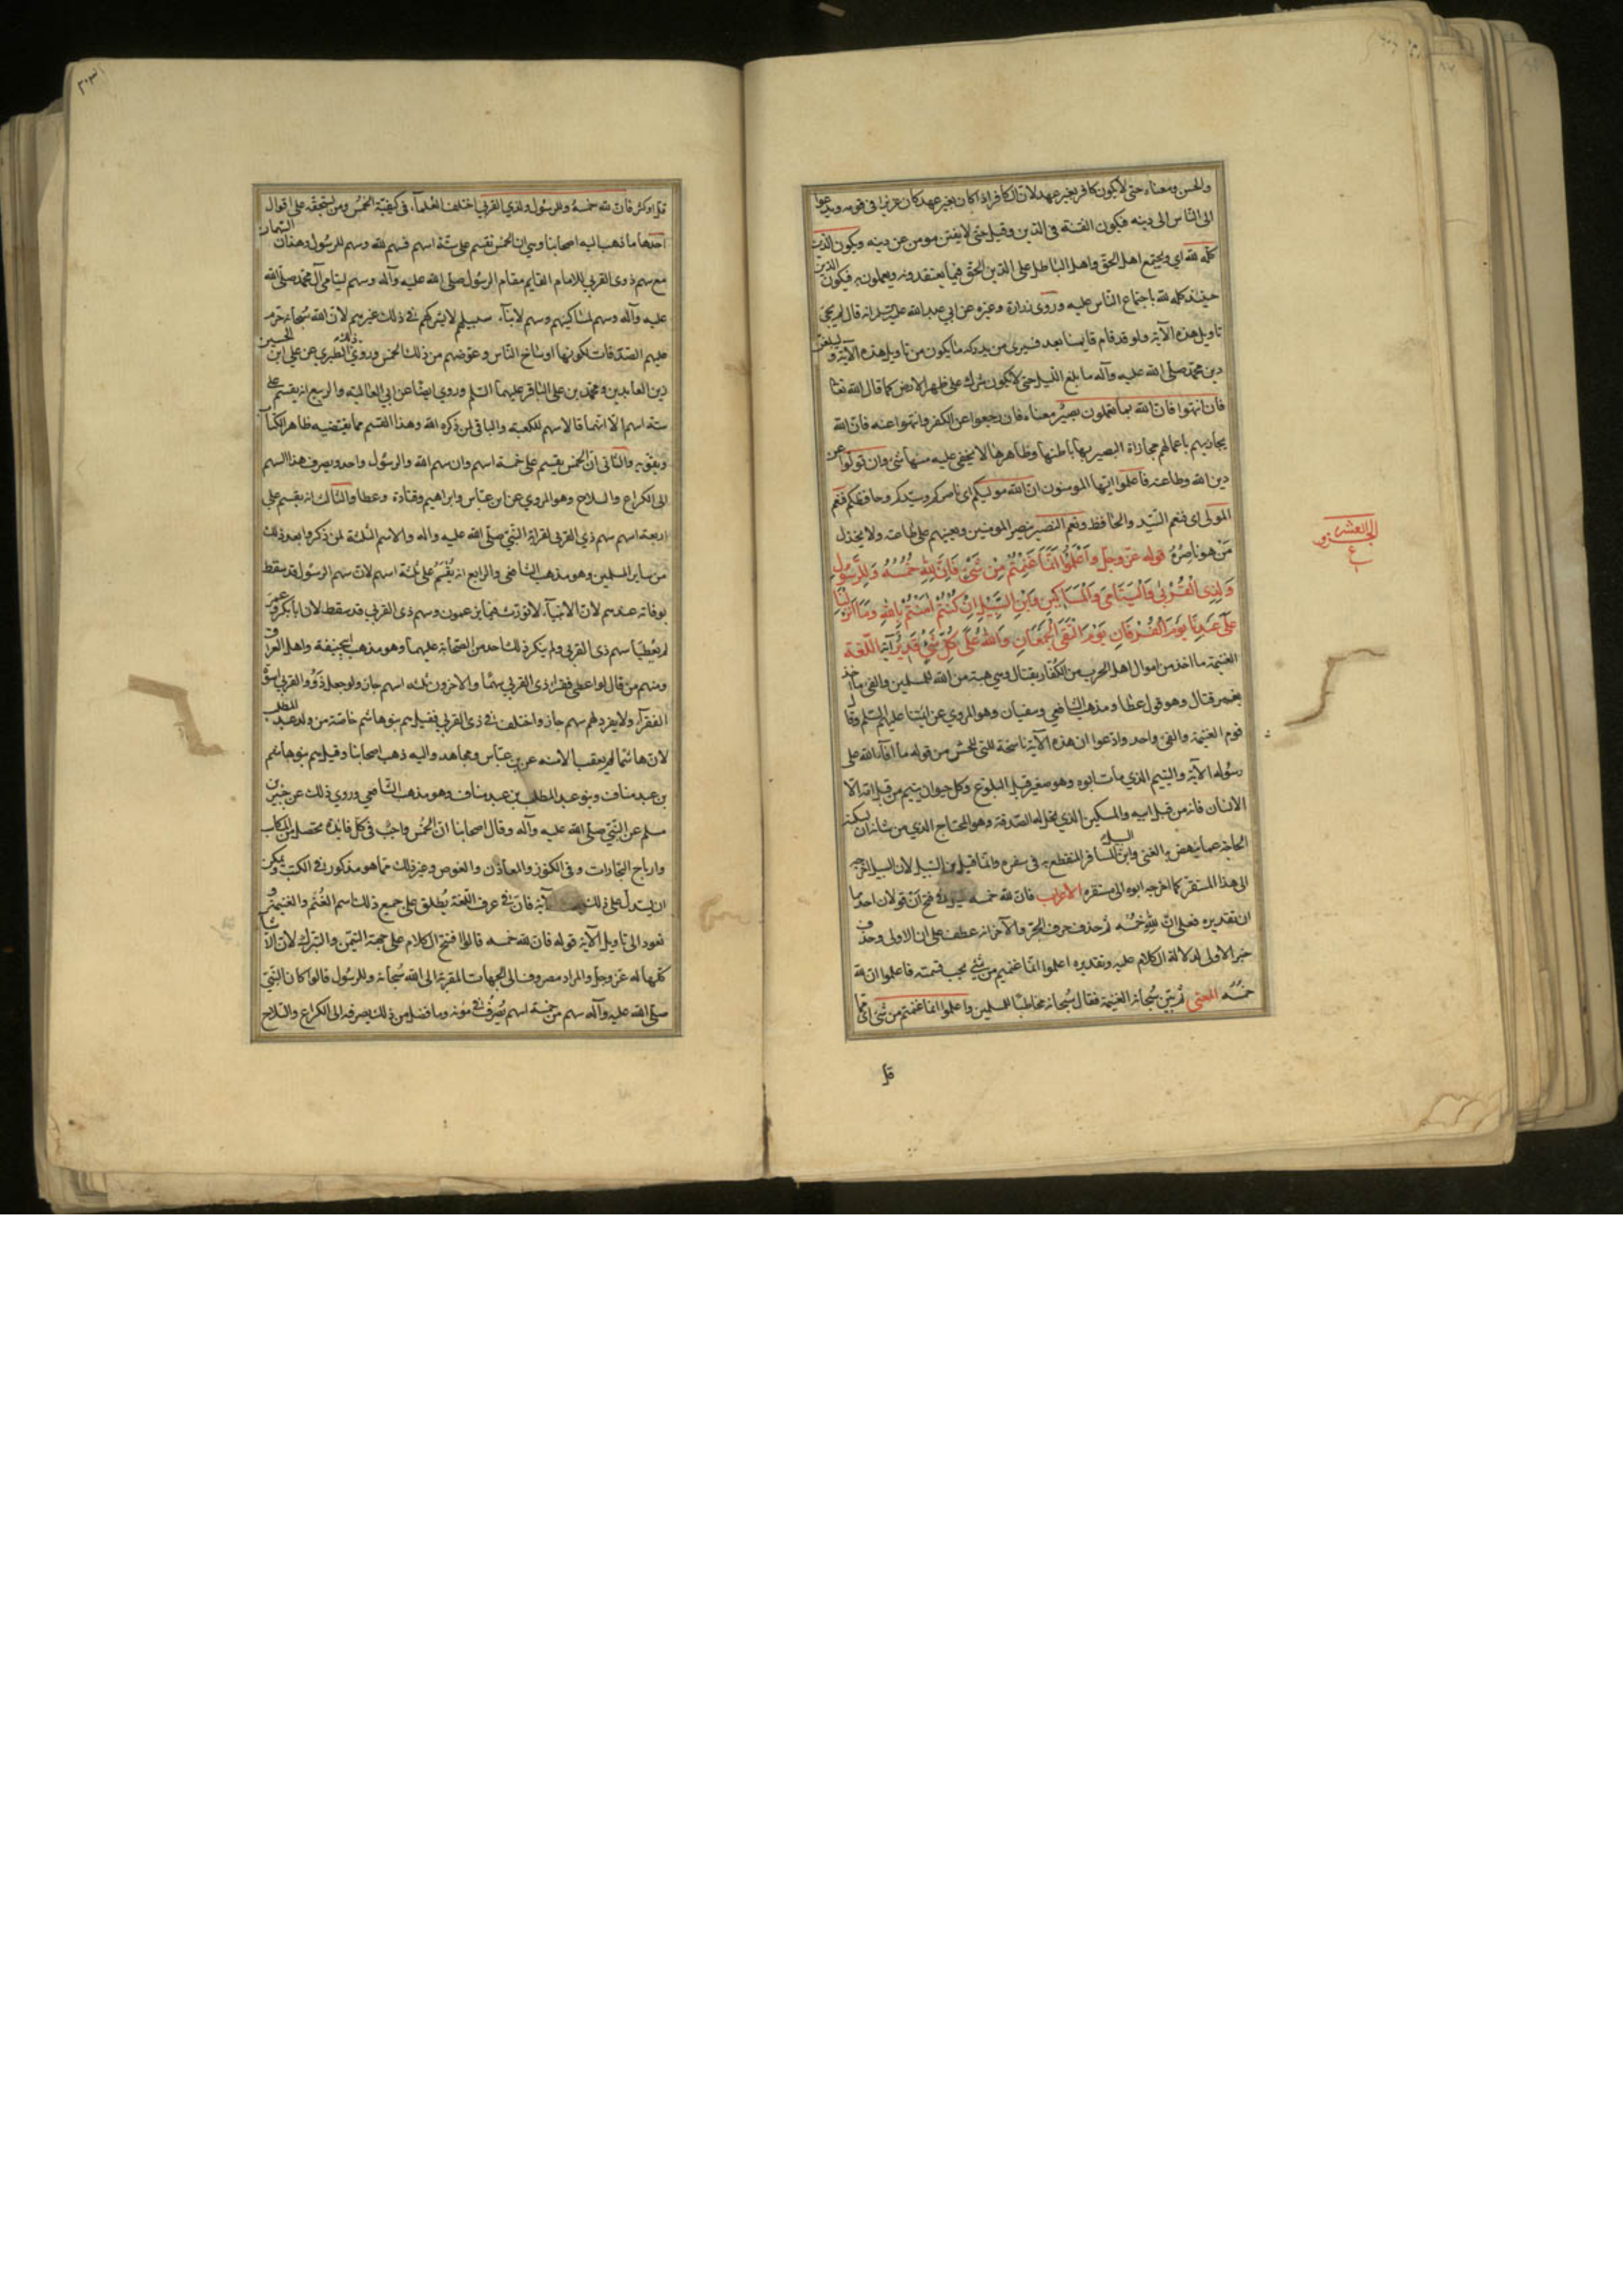 والحسن ومعناه حتى لا يكون كافر بغير عهد لان الكافر اذا كان بغير عهد كان عزيزا في قومه ويدعوا
الى الناس الى دينه فيكون الفتنة في الدين وقيل حتى لا يفتن مومن عن دينه ويكون الدين
كله لله اي ويجتمع اهل الحق واهل الباطل على الدين الحق فيما يعتقدونه ويعملون به فيكون الدين
حينئذ كله لله باجتماع الناس عليه وروى زرارة وغيره عن ابي عبد الله عليه السلم انه قال لم يجئ
تاويل هذه الآية ولو قد قام قايمنا بعد فسيرى من يدركه ما يكون من تاويل هذه الآية وليبلغن
دين محمد صلى الله عليه وآله ما بلغ الليل حتى لا يكون شرك على ظهر الارض كما قال الله تعا
فان انتهوا فان الله بما يعملون بصير معناه فان رجعوا عن الكفر وانتهوا عنه فان الله
يجازيهم باعمالهم مجازاة البصير بها باطنها وظاهرها لا يخفى عليه منها شئ وان تولوا عن
دين الله وطاعته فاعلموا ايها المومنون ان الله موليكم اي ناصركم وسيدكم وحافظكم فنعم
المولى اي فنعم السيد والحافظ ونعم النصير ينصر المومنين ويعينهم على طاعته ولا يخذل
من هو ناصره قوله عز وجل واعلموا انما غنمتم من شئ فان لله خمسه وللرسول
ولذي القربى واليتامى والمساكين وابن السبيل ان كنتم امنتم بالله وما انزلنا
على عبدنا يوم الفرقان يوم التقى الجمعان والله على كل شئ قدير آية اللغة
الغنيمة ما اخذ من اموال اهل الحرب من الكفار بقتال وهي هبة من الله للمسلمين والفئ ما اخذ
بغير قتال وهو قول عطا ومذهب الشافعي وسفيان وهو المروي عن ائمتنا عليهم السلم وقال
قوم الغنيمة والفئ واحد وادعوا ان هذه الآية ناسخة للتي في الحشر من قوله ما افاء الله على
رسوله الآية واليتيم الذي مات ابوه وهو صغير قبل البلوغ وكل حيوان يتيم من قبل امه الا
الانسان فانه من قبل ابيه والمسكين الذي تحل له الصدقة وهو المحتاج الذي من شانه ان يسكنه
الحاجة عما ينهض به الغنى وابن السبيل المسافر المنقطع به في سفره وانما قيل ابن السبيل لان السبيل اخرجه
الى هذا المستقر كما اخرجه ابوه الى مستقره الاعراب فان لله خمسه في فتح ان قولان احدهما
ان تقديره فعلى ان لله خمسه ثم حذف حرف الجر والآخر انه عطف على ان الاولى وحذف
خبر الاولى لدلالة الكلام عليه وتقديره اعلموا انما غنمتم من شئ يجب قسمته فاعلموا ان لله
خمسه المعنى ثم بين سبحانه الغنيمة فقال سبحانه مخاطبا للمسلمين واعلموا انما غنمتم من شئ اي مما
قل
الجزء العشر
٣٠٣
قل او كثر فان لله خمسه وللرسول ولذي القربى اختلف العلماء في كيفية الخمس ومن يستحقه على اقوال
احدها ما ذهب اليه اصحابنا وهي ان الخمس تقسم على ستة اسهم فسهم لله وسهم للرسول وهذان السهمان
مع سهم ذوى القربى للامام القايم مقام الرسول صلى الله عليه وآله وسهم ليتامى آل محمد صلى الله
عليه وآله وسهم لمساكيهم وسهم لابناء سبيلهم لا يشركهم في ذلك غيرهم لان الله سبحانه حرم
عليهم الصدقات لكونها اوساخ الناس وعوضهم من ذلك الخمس وروى ذلك الطبري عن علي ابن الحسين
زين العابدين ومحمد بن على الباقر عليهما السلم وروي ايضا عن ابي العالية والربيع انه يقسم على
ستة اسهم الا انهما قالا سهم للكعبة والباقى لمن ذكره الله وهذا القسم مما يقتضيه ظاهر الكتاب
ويقويه والثانى ان الخمس يقسم على خمسة اسهم وان سهم الله والرسول واحد ويصرف هذا السهم
الى الكراع والسلاح وهو المروي عن ابن عباس وابراهيم وقتادة وعطا والثالث انه يقسم على
اربعة اسهم سهم ذي القربى لقرابة النبي صلى الله عليه واله والاسهم الثلثة لمن ذكروا بعد ذلك
من ساير المسلمين وهو مذهب الشافعي والرابع انه يقسم على ثلثة اسهم لان سهم الرسول قد سقط
بوفاته عندهم لان الانبياء لا تورث فيما يزعمون وسهم ذى القربى قد سقط لان ابا بكر وعمر
لم يعطيا سهم ذى القربى ولم ينكر ذلك احد من الصحابة عليهما وهو مذهب ابي حنيفة واهل العراق
ومنهم من قال لو اعطى فقراء ذى القربى سهما والآخرون ثلثه اسهم جاز ولو جعل ذوو القربى اسوة
الفقراء ولا يفرد لهم سهم جاز واختلف في ذى القربى فقيل هم بنو هاشم خاصة من ولد عبد المطلب
لان هاشما لم يعقب الا منه عن بن عباس ومجاهد واليه ذهب اصحابنا وقيل هم بنو هاشم
بن عبد مناف وبنو عبد المطلب بن عبد مناف وهو مذهب الشافعي وروي ذلك عن جبير بن
مسلم عن النبي صلى الله عليه وآله وقال اصحابنا ان الخمس واجب في كل فايدة تحصل من المكاسب
وارباح التجارات وفى الكنوز والمعادن والغوص وغير ذلك مما هو مذكور في الكتب ويمكن
ان يستدل على ذلك الآية فان في عرف اللغة يطلق على جميع ذلك اسم الغنم والغنيمة
نعود الى تاويل الآية قوله فان لله خمسه قالوا افتتح الكلام على جهة التيمن والتبرك لان الاشيا
كلها له عز وجل والمراد مصروف الى الجهات المقربة الى الله سبحانه وللرسول قالوا كان النبي
صلى الله عليه وآله سهم من خمسة اسهم يصرفه في مؤنه وما فضل من ذلك يصرفه الى الكراع والسلاح